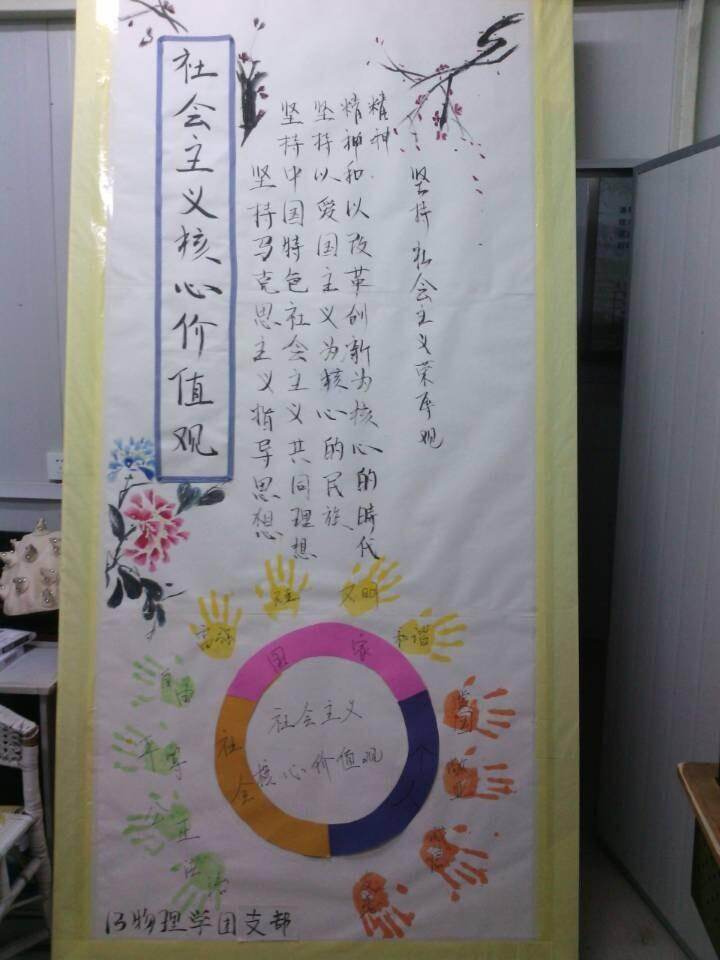 社会主义核心价值观
坚持马克思主义指导思想
坚持中国特色社会主义共同理想
坚持以爱国主义为核心的民族
精神和以改革创新为核心的時代
精神
坚持社会主义荣辱观
富强
民主
文明
和谐
国家
自由
平等
公正
法治
社会
社会主义
核心价值观
个人
爱国
敬业
诚信
友善
13物理学团支部